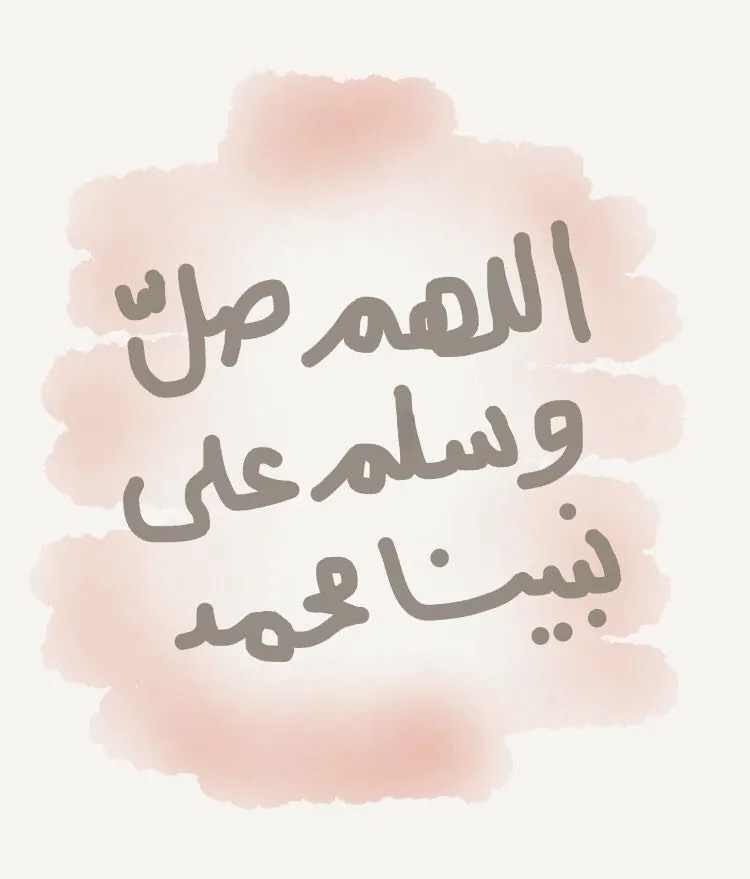 اللهم صلّ
وسلم على
نبينا محمد